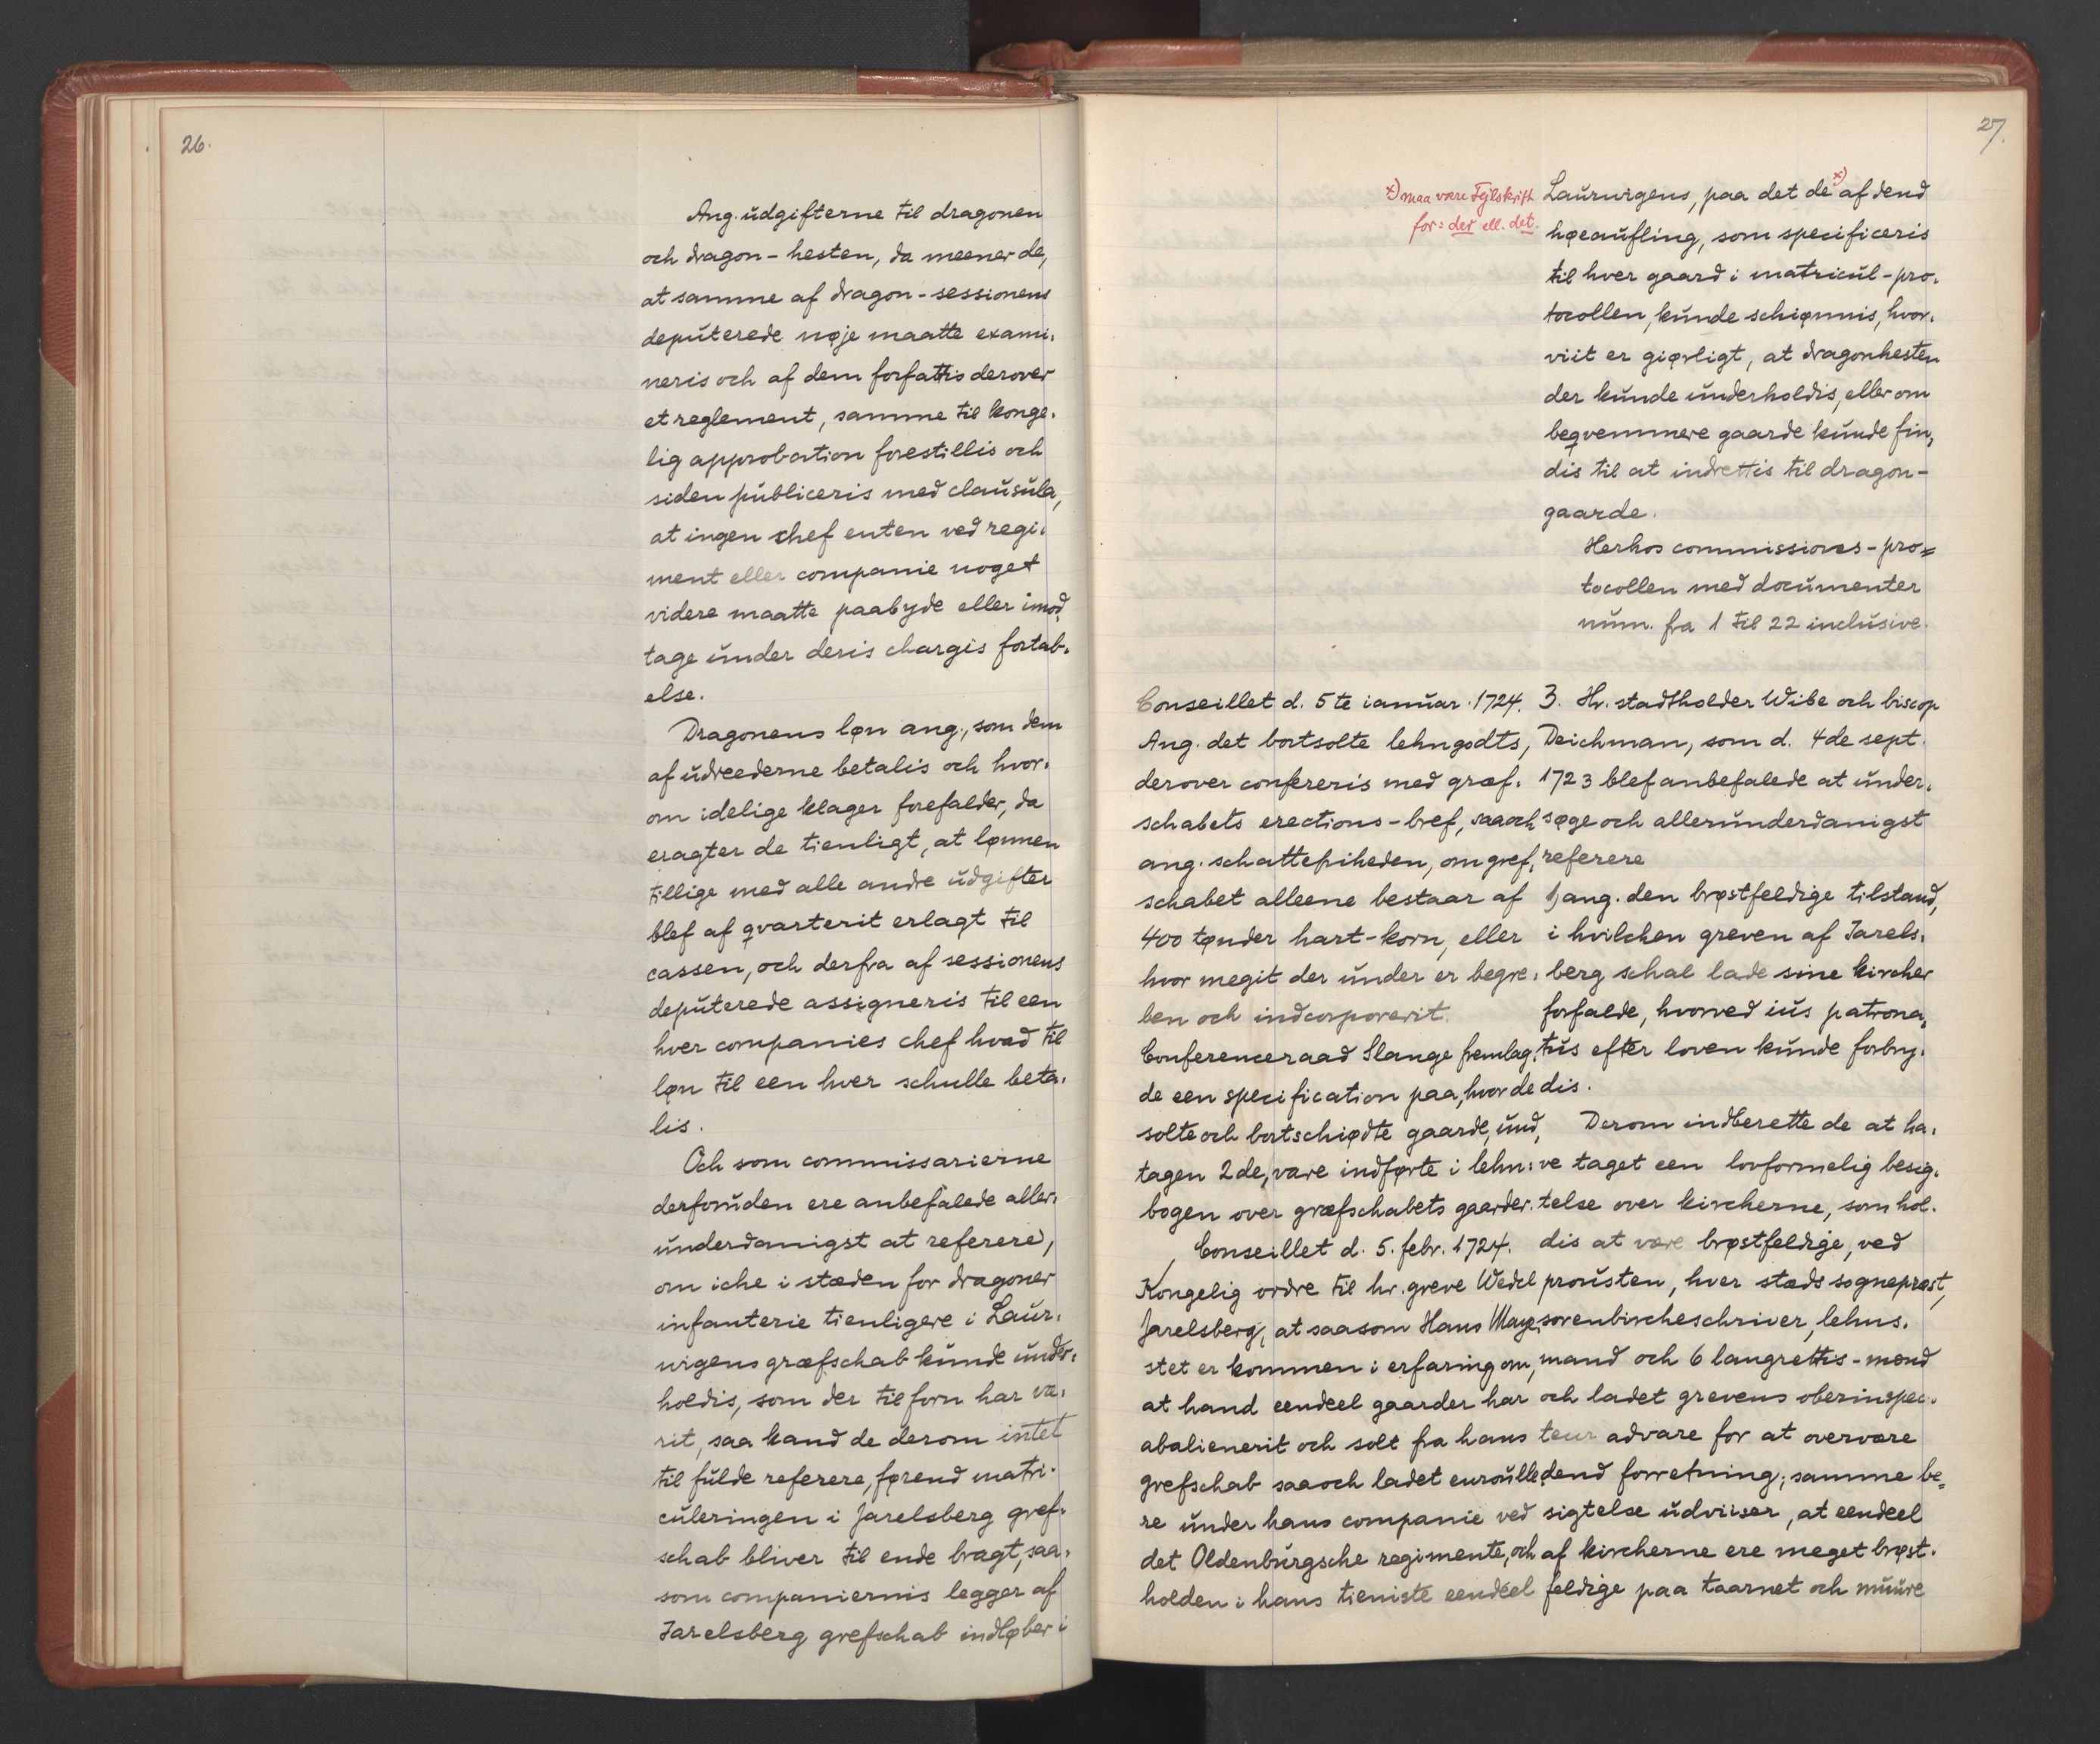 26.
Ang. udgifterne til dragonen
och dragon-hesten, da meener de,
at samme af dragon-sessionens
deputerede nøje maatte exami-
neris och af dem forfattis derover
et reglement, samme til konge-
lig approbation forestillis och
siden publiceris med clausula,
at ingen chef enten ved regi-
ment eller companie noget
videre maatte paabyde eller imod-
tage under deris chargis fortab-
else.
Dragonens løn ang., som dem
af udreederne betalis och hvor-
om idelige klager forefalder, da
eragter de tienligt, at lønnen
tillige med alle andre udgifter
blef af qvarterit erlagt til
cassen, och derfra af sessionens
deputerede assigneris til een
hver companies chef hvad til
løn til een hver schulle beta-
lis.
Och som commissarierne
derforuden ere anbefalede aller-
underdanigst at referere,
om iche i stæden for dragoner
infanterie tienligere i Laur-
wigens græfschab kunde under-
holdis, som der tilforn har væ-
rit, saa kand de derom intet
til fulde referere, førend matri-
culeringen i Jarelsberg gref-
schab bliver til ende bragt, saa-
som companiernis legger af
Jarelsberg grefschab indløber i
27.
x) maa være Fejlskrift
for: der ell. det.
Laurwigens, paa det de x) af dend
høeaufling, som specificeris
til hver gaard i matricul-pro-
tocollen, kunde schiønnis, hvor-
viit er giørligt, at dragonhesten
der kunde underholdis, eller om
beqvemmere gaarde kunde fin-
dis til at indrettis til dragon-
gaarde.
Herhos commissions-pro-
tocollen med documenter
num. fra 1 til 22 inclusive.
Conseillet d. 5te ianuar. 1724.
Ang. det bortsolte lehngodts,
derover confereris med græf-
schabets erections-bref, saaoch
ang. schattefriheden, om gref-
schabet alleene bestaar af
400 tønder hart-korn, eller
hvor megit der under er begre-
ben och indcorporerit.
Conferenceraad Slange fremlag-
de een specification paa, hvor de
solte och bortschiødte gaarde, und-
tagen 2de, vare indførte i lehn-
bogen over græfschabets gaarder.
Conseillet d. 5. febr. 1724.
Kongelig ordre til hr. greve Wedel
Jarelsberg, at saasom Hans Maye-
stet er kommen i erfaring om,
at hand eendeel gaarder har
abalienerit och solt fra hans
grefschab saaoch ladet enroulle-
re under hans companie ved
det Oldenburgsche regimente, och
holden i hans tieniste eendeel
3. Hr. stadtholder Wibe och biscop
Deichman, som d. 4de sept.
1723 blef anbefalede at under-
søge och allerunderdanigst
referere
1) ang. den brøstfeldige tilstand,
i hvilchen greven af Jarels-
berg schal lade sine kircher
forfalde, hvorved ius patrona-
tus efter loven kunde forbry-
dis.
Derom indberette de at ha-
ve taget een lovformelig besig-
telse over kircherne, som hol-
dis at være brøstfeldige, ved
prousten, hver stæds sogneprest,
sorenbircheschriver, lehns-
mand och 6 laugrettis-mænd
och ladet grevens oberinspec-
teur advare for at overvære
dend forretning; samme be-
sigtelse udviiser, at eendeel
af kircherne ere meget brøst-
feldige paa taarnet och muure